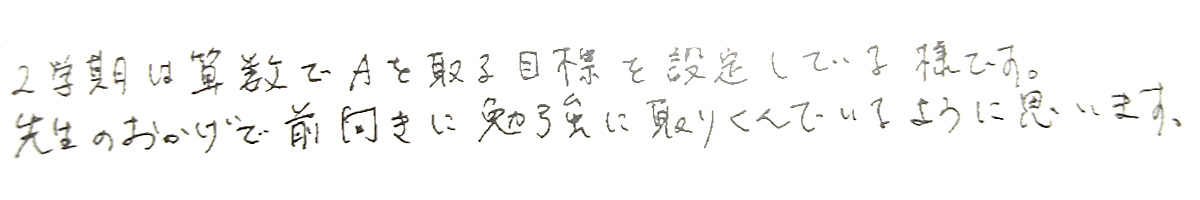 2学期は算数でAを取る目標を設定している様です。
先生のおかげで前向きに勉強に取りくんでいるように思います。